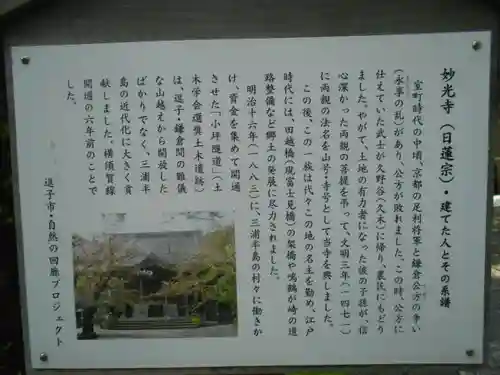 妙光寺（日蓮宗）・建てた人とその系譜
室町時代の中頃、京都の足利将軍と鎌倉公方の争い
（永享の乱）があり、公方が敗れました。この時、公方に
仕えていた武士が久野谷（久木）に帰り、農民にもどり
ました。やがて、土地の有力者になった彼の子孫が、信
心深かった両親の菩提を弔って、文明三年（一四七一）
に両親の法名を山号・寺号として当寺を興しました。
この後、この一族は代々この地の名主を勤め、江戸
時代には、田越橋（現富士見橋）の架橋や鳴鶴が崎の道
路整備など郷土の発展に尽力されました。
明治十六年（一八八三）に、三浦半島の村々に働きか
け、資金を集めて開通
させた「小坪隧道」（土
木学会選奨土木遺跡）
は、逗子・鎌倉間の難儀
な山越えから開放した
ばかりでなく、三浦半
島の近代化に大きく貢
献しました。横須賀線
開通の六年前のことで
した。
逗子市・自然の回廊プロジェクト